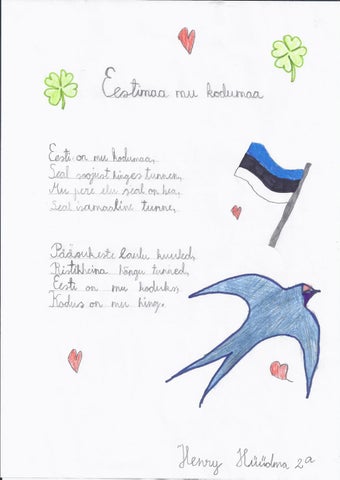 Eestimaa mu kodumaa
Eesti on mu kodumaa,
Seal soojust hinges tunnen,
Mu pere elu seal on hea,
Seal isamaaline tunne,
Pääsukeste laulu kuuled,
Ristikheina hõngu tunned,
Eesti on mu koduks,
Kodus on mu hing.
Henry 2a